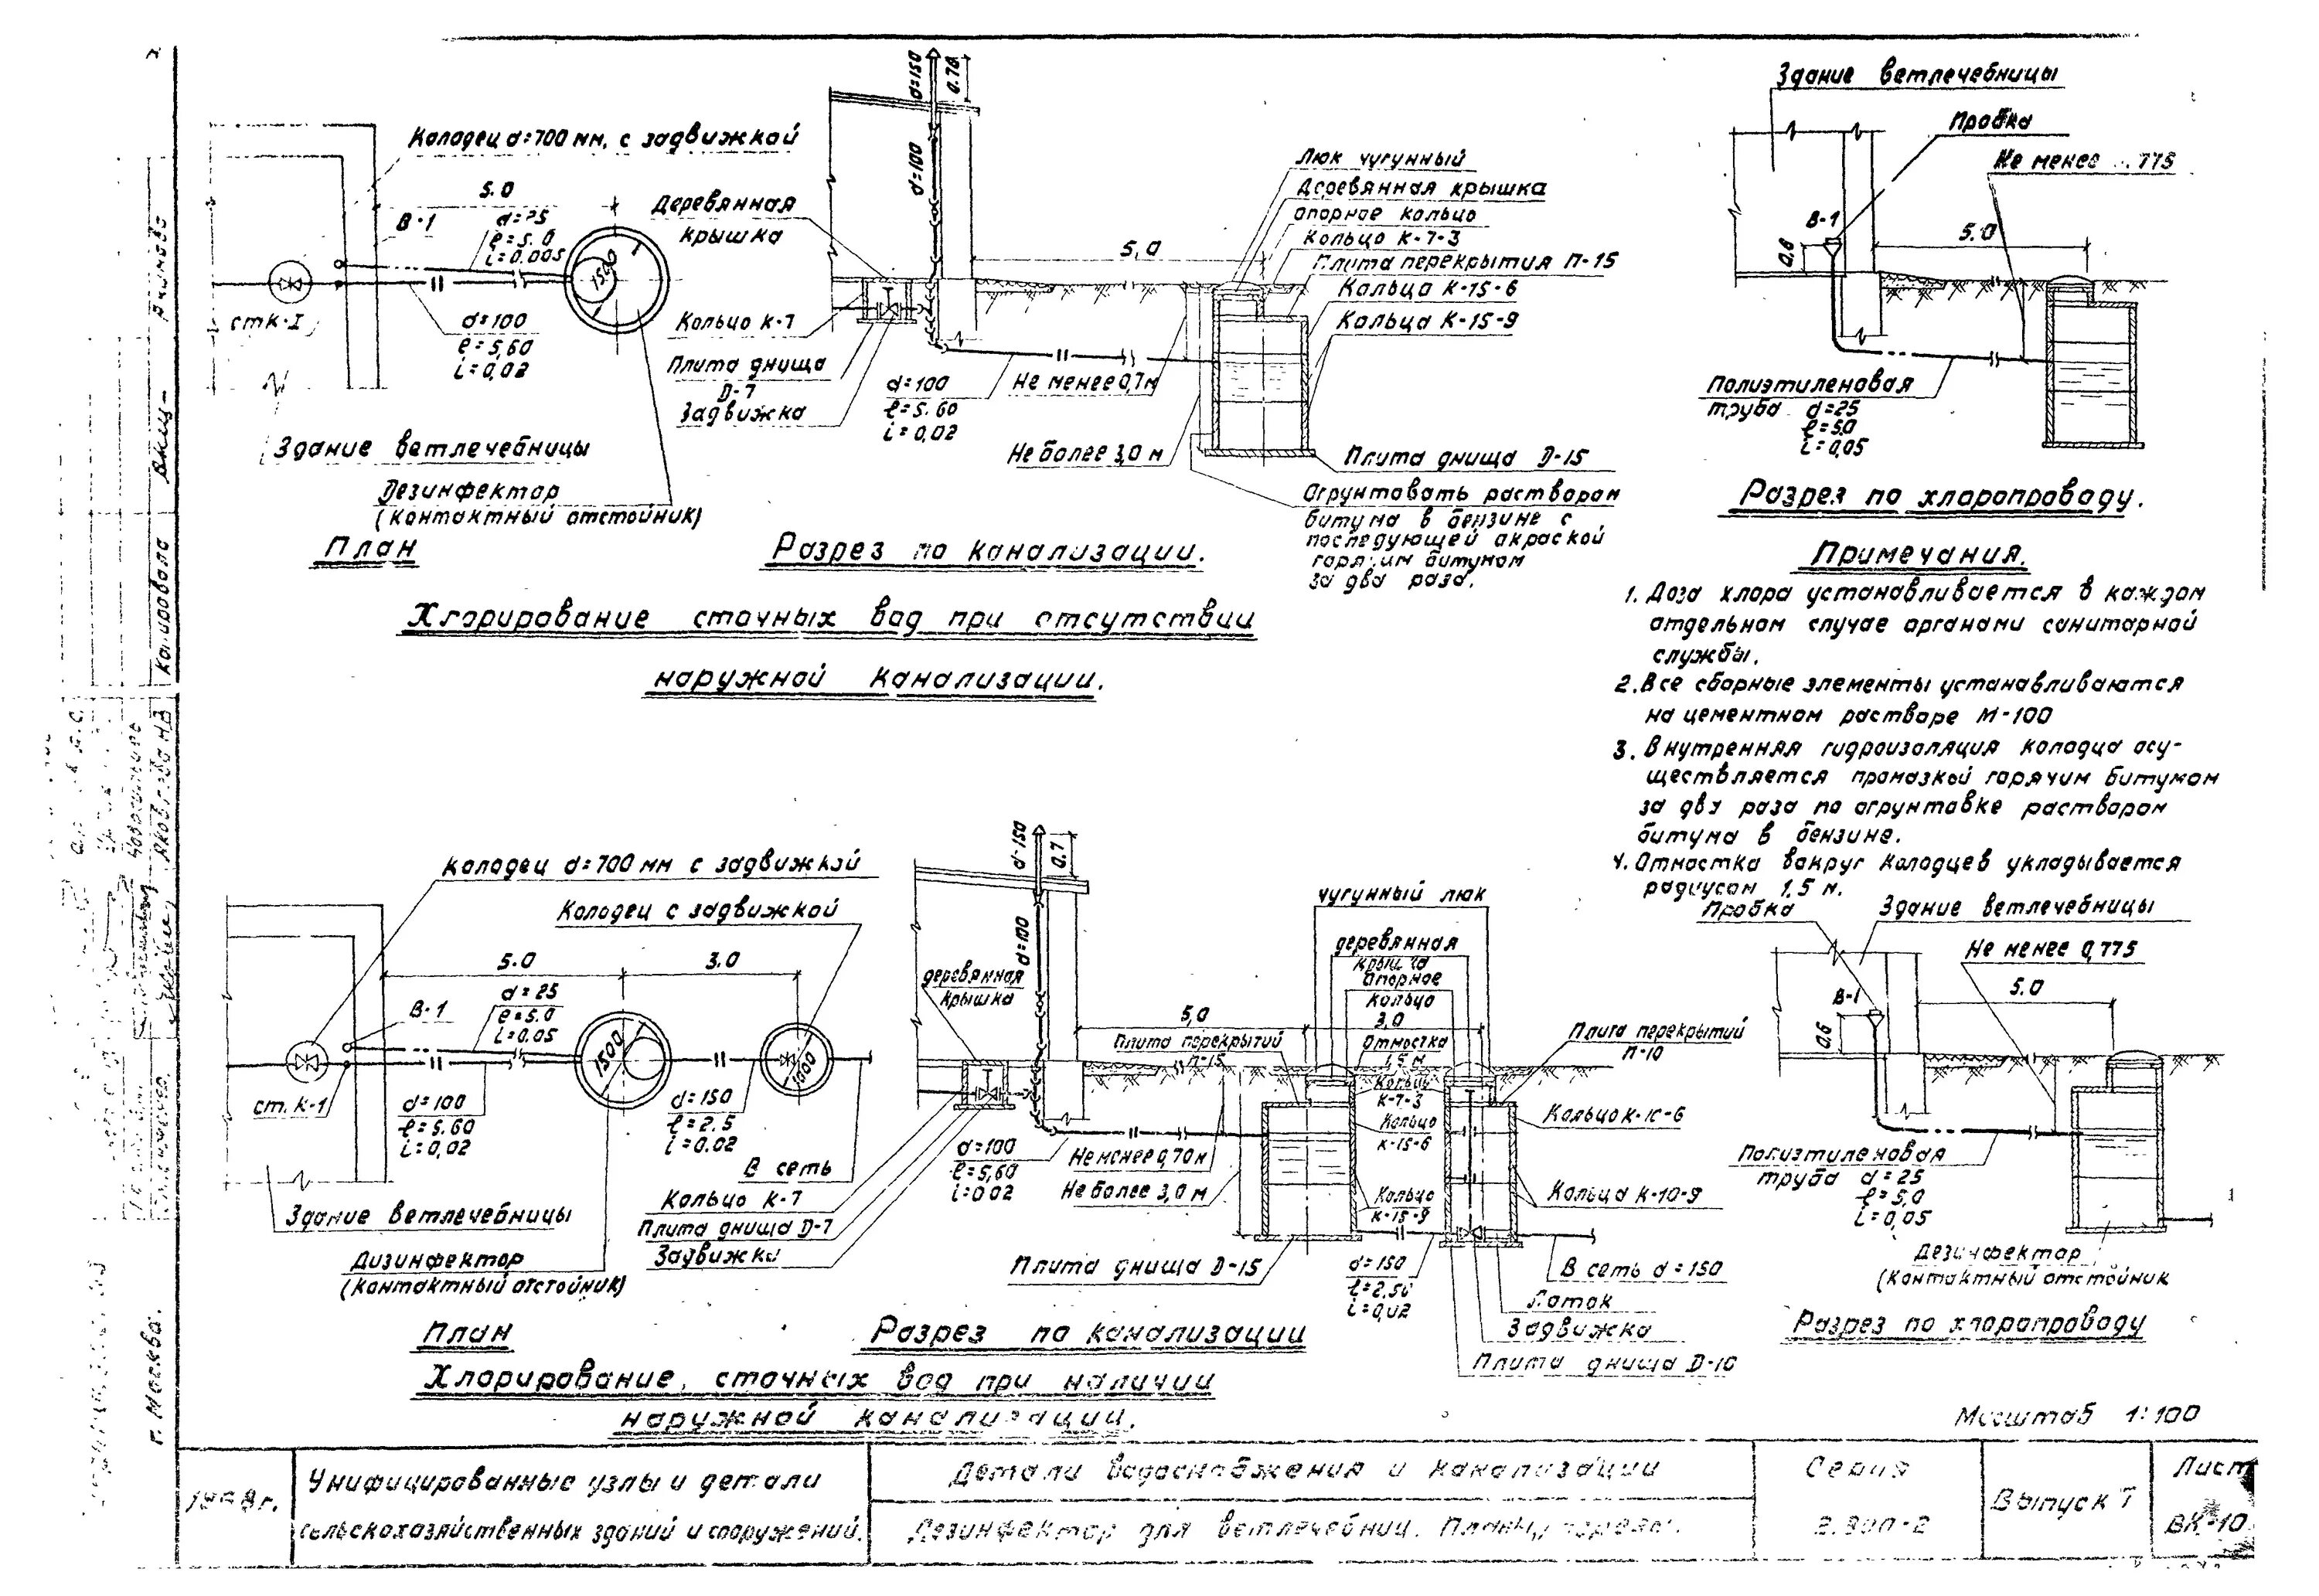 Колодец d=700 мм, с задвижкой
5.0
В-1
d=25
ℓ=5.0
i=0.005
1500
ст К-I
d=100
ℓ=5,60
i=0,02
Здание ветлечебницы
Дезинфектор
(контактный отстойник)
План
d=150
0.70
d=100
Деревянная
крышка
5,0
Кольцо К-7
Плита днища
D-7
Задвижка
d=100
ℓ=5.60
i=0,02
Не менее 0,7м
Не более 3,0 м
Люк чугунный
Деревянная крышка
опорное кольцо
Кольцо К-7-3
Плита перекрытия П-15
Кольца К-15-6
Кольца К-15-9
Плита днища D-15
Огрунтовать раствором
битума в бензине с
последующей окраской
горячим битумом
за два раза.
Разрез по канализации.
Здание ветлечебницы
Пробка
Не менее 0.775
В-1
0.6
5.0
Полиэтиленовая
труба d=25
ℓ=5.0
i=0,05
Разрез по хлоропроводу.
Хлорирование сточных вод при отсутствии
наружной канализации.
Примечания.
1. Доза хлора устанавливается в каждом
отдельном случае органами санитарной
службы.
2. Все сборные элементы устанавливаются
на цементном растворе М-100
3. Внутренняя гидроизоляция колодца осу-
ществляется промазкой горячим битумом
за два раза по огрунтовке раствором
битума в бензине.
4. Отмостка вокруг колодцев укладывается
радиусом 1,5 м.
Колодец d=700 мм с задвижкой
Колодец с задвижкой
5.0
3.0
В-1
d=25
ℓ=5.0
i=0.05
1500
1000
ст. К-1
d=100
ℓ=5.60
i=0,02
d=150
ℓ=2.5
i=0.02
В сеть
Здание ветлечебницы
Дизинфектор
(контактный отстойник)
План
d-150
0.7
d=100
деревянная
крышка
5,0
3,0
чугунный люк
деревянная
крышка
Опорное
кольцо
Плита перекрытий
П-15
Отмостка
1,5 м
Плита перекрытий
П-10
Кольцо
К-7-3
Кольцо
К-15-6
Кольцо
К-15-9
Кольцо К-10-6
Кольца К-10-9
d=100
ℓ=5,60
i=0.02
Не менее 0,70м
Не более 3,0 м
Кольцо К-7
Плита днища D-7
Задвижка
Плита днища D-15
d=150
ℓ=2,50
i=0,02
В сеть d=150
Лоток
Задвижка
Плита днища D-10
Разрез по канализации
Пробка
Здание ветлечебницы
Не менее 0,775
В-1
0.6
5.0
Полиэтиленовая
труба d=25
ℓ=5,0
i=0,05
Дезинфектор
(контактный отстойник
Разрез по хлоропроводу
Хлорирование, сточных вод при наличии
наружной канализации.
Масштаб 1:100
Унифицированные узлы и детали
сельскохозяйственных зданий и сооружений.
Детали водоснабжения и канализации
Дезинфектор для ветлечебниц. Планы, разрезы.
Серия
2.900-2
Выпуск I
Лист
ВК-10
г. Москва.
Копировала